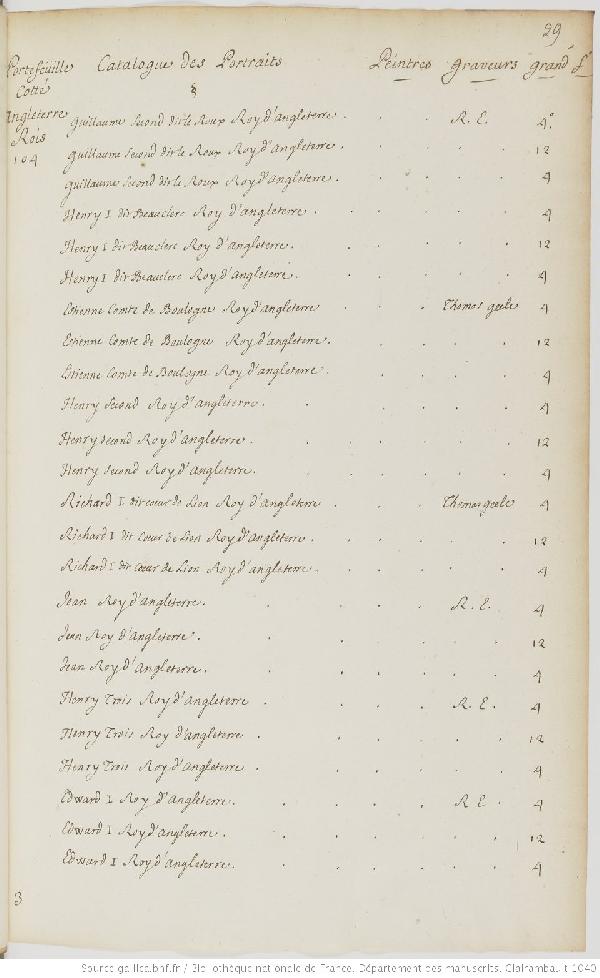 29
Portefeuille Catalogue des Portraits Peintres graveurs grandr
Cotté
Angleterre
Rois
104
guillaume Second dit le Roux Roy d'angleterre . . . R. E. 4°
guillaume Second dit le Roux Roy d'angleterre . . . . . 12
guillaume Second dit le Roux Roy d'angleterre . . . . . 4
Henry I dit Beauclerc Roy d'angleterre . . . . . 4
Henry I dit Beauclerc Roy d'angleterre . . . . . 12
Henry I dit Beauclerc Roy d'angleterre . . . . . 4
Etienne Comte de Boulogne Roy d'angleterre . . . Thomas geele 4
Etienne Comte de Boulogne Roy d'angleterre . . . . . 12
Etienne Comte de Boulogne Roy d'angleterre . . . . . 4
Henry Second Roy d'angleterre . . . . . . 4
Henry Second Roy d'angleterre . . . . . . 12
Henry Second Roy d'angleterre . . . . . 4
Richard I dit coeur de Lion Roy d'Angleterre . . . Thomas geele 4
Richard I dit Coeur de Lion Roy d'Angleterre . . . . . 12
Richard I dit coeur de Lion Roy d'angleterre . . . . . 4
Jean Roy d'Angleterre . . . . R. E. 4
Jean Roy d'Angleterre . . . . . . 12
Jean Roy d'Angleterre . . . . . . 4
Henry Trois Roy d'Angleterre . . . . R. E. 4
Henry Trois Roy d'angleterre . . . . . 12
Henry Trois Roy d'Angleterre . . . . . 4
Edward I Roy d'Angleterre . . . . R E . 4
Edward I Roy d'Angleterre . . . . . . 12
Edward I Roy d'Angleterre . . . . . . 4
3
Source gallica.bnf.fr / Bibliothèque nationale de France. Département des manuscrits. Clairambault 1040